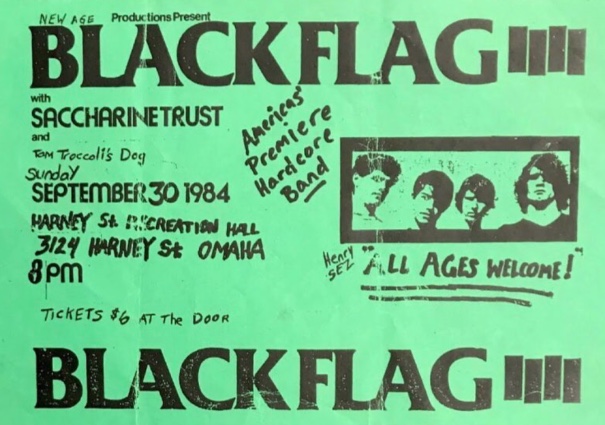 NEW AGE Productions Present
BLACK FLAG
with
SACCHARINE TRUST
and
Tom Troccoli's Dog
Sunday
SEPTEMBER 30 1984
HARNEY St. RECREATION HALL
3124 HARNEY St OMAHA
8 pm
TICKETS $6 AT The DOOR
Americas'
Premiere
Hardcore
Band
Henry
SEZ
"ALL AGES WELCOME!"
BLACK FLAG